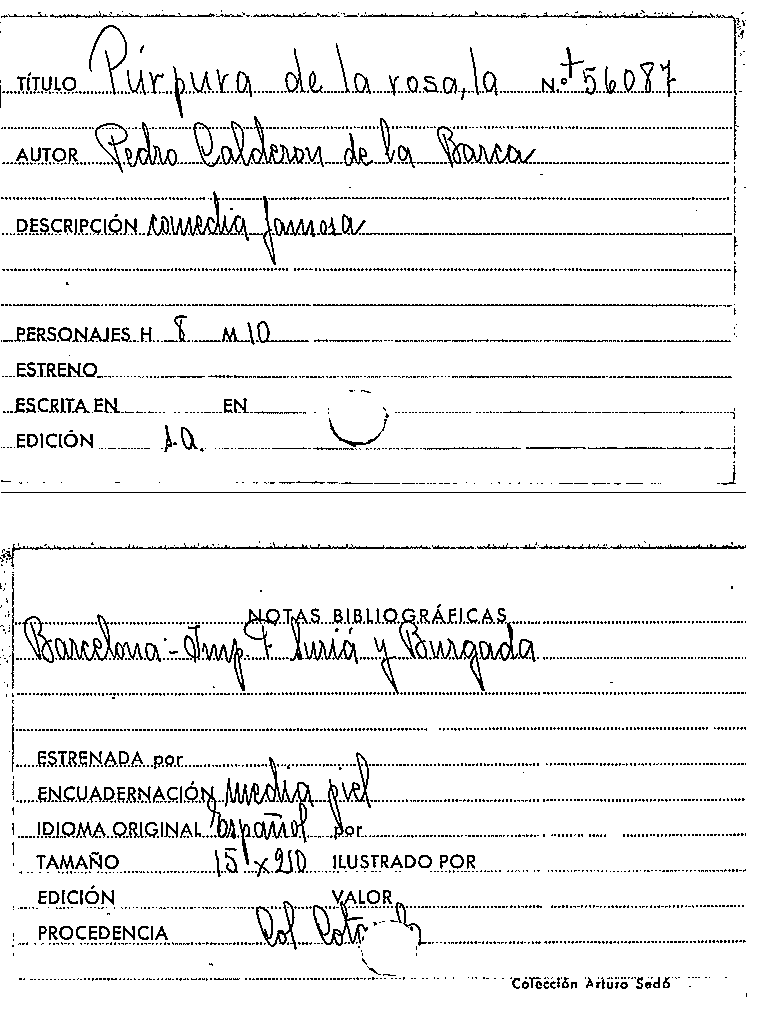 TÍTULO Púrpura de la rosa, la N.º +56087
AUTOR Pedro Calderon de la Barca
DESCRIPCIÓN comedia famosa
PERSONAJES H 8 M 10
ESTRENO
ESCRITA EN EN
EDICIÓN s.a.
NOTAS BIBLIOGRÁFICAS
Barcelona - Imp. F. Suriá y Burgada
ESTRENADA por
ENCUADERNACIÓN media piel
IDIOMA ORIGINAL español por
TAMAÑO 15 x 210 ILUSTRADO POR
EDICIÓN VALOR
PROCEDENCIA Col
Colección Arturo Sedó